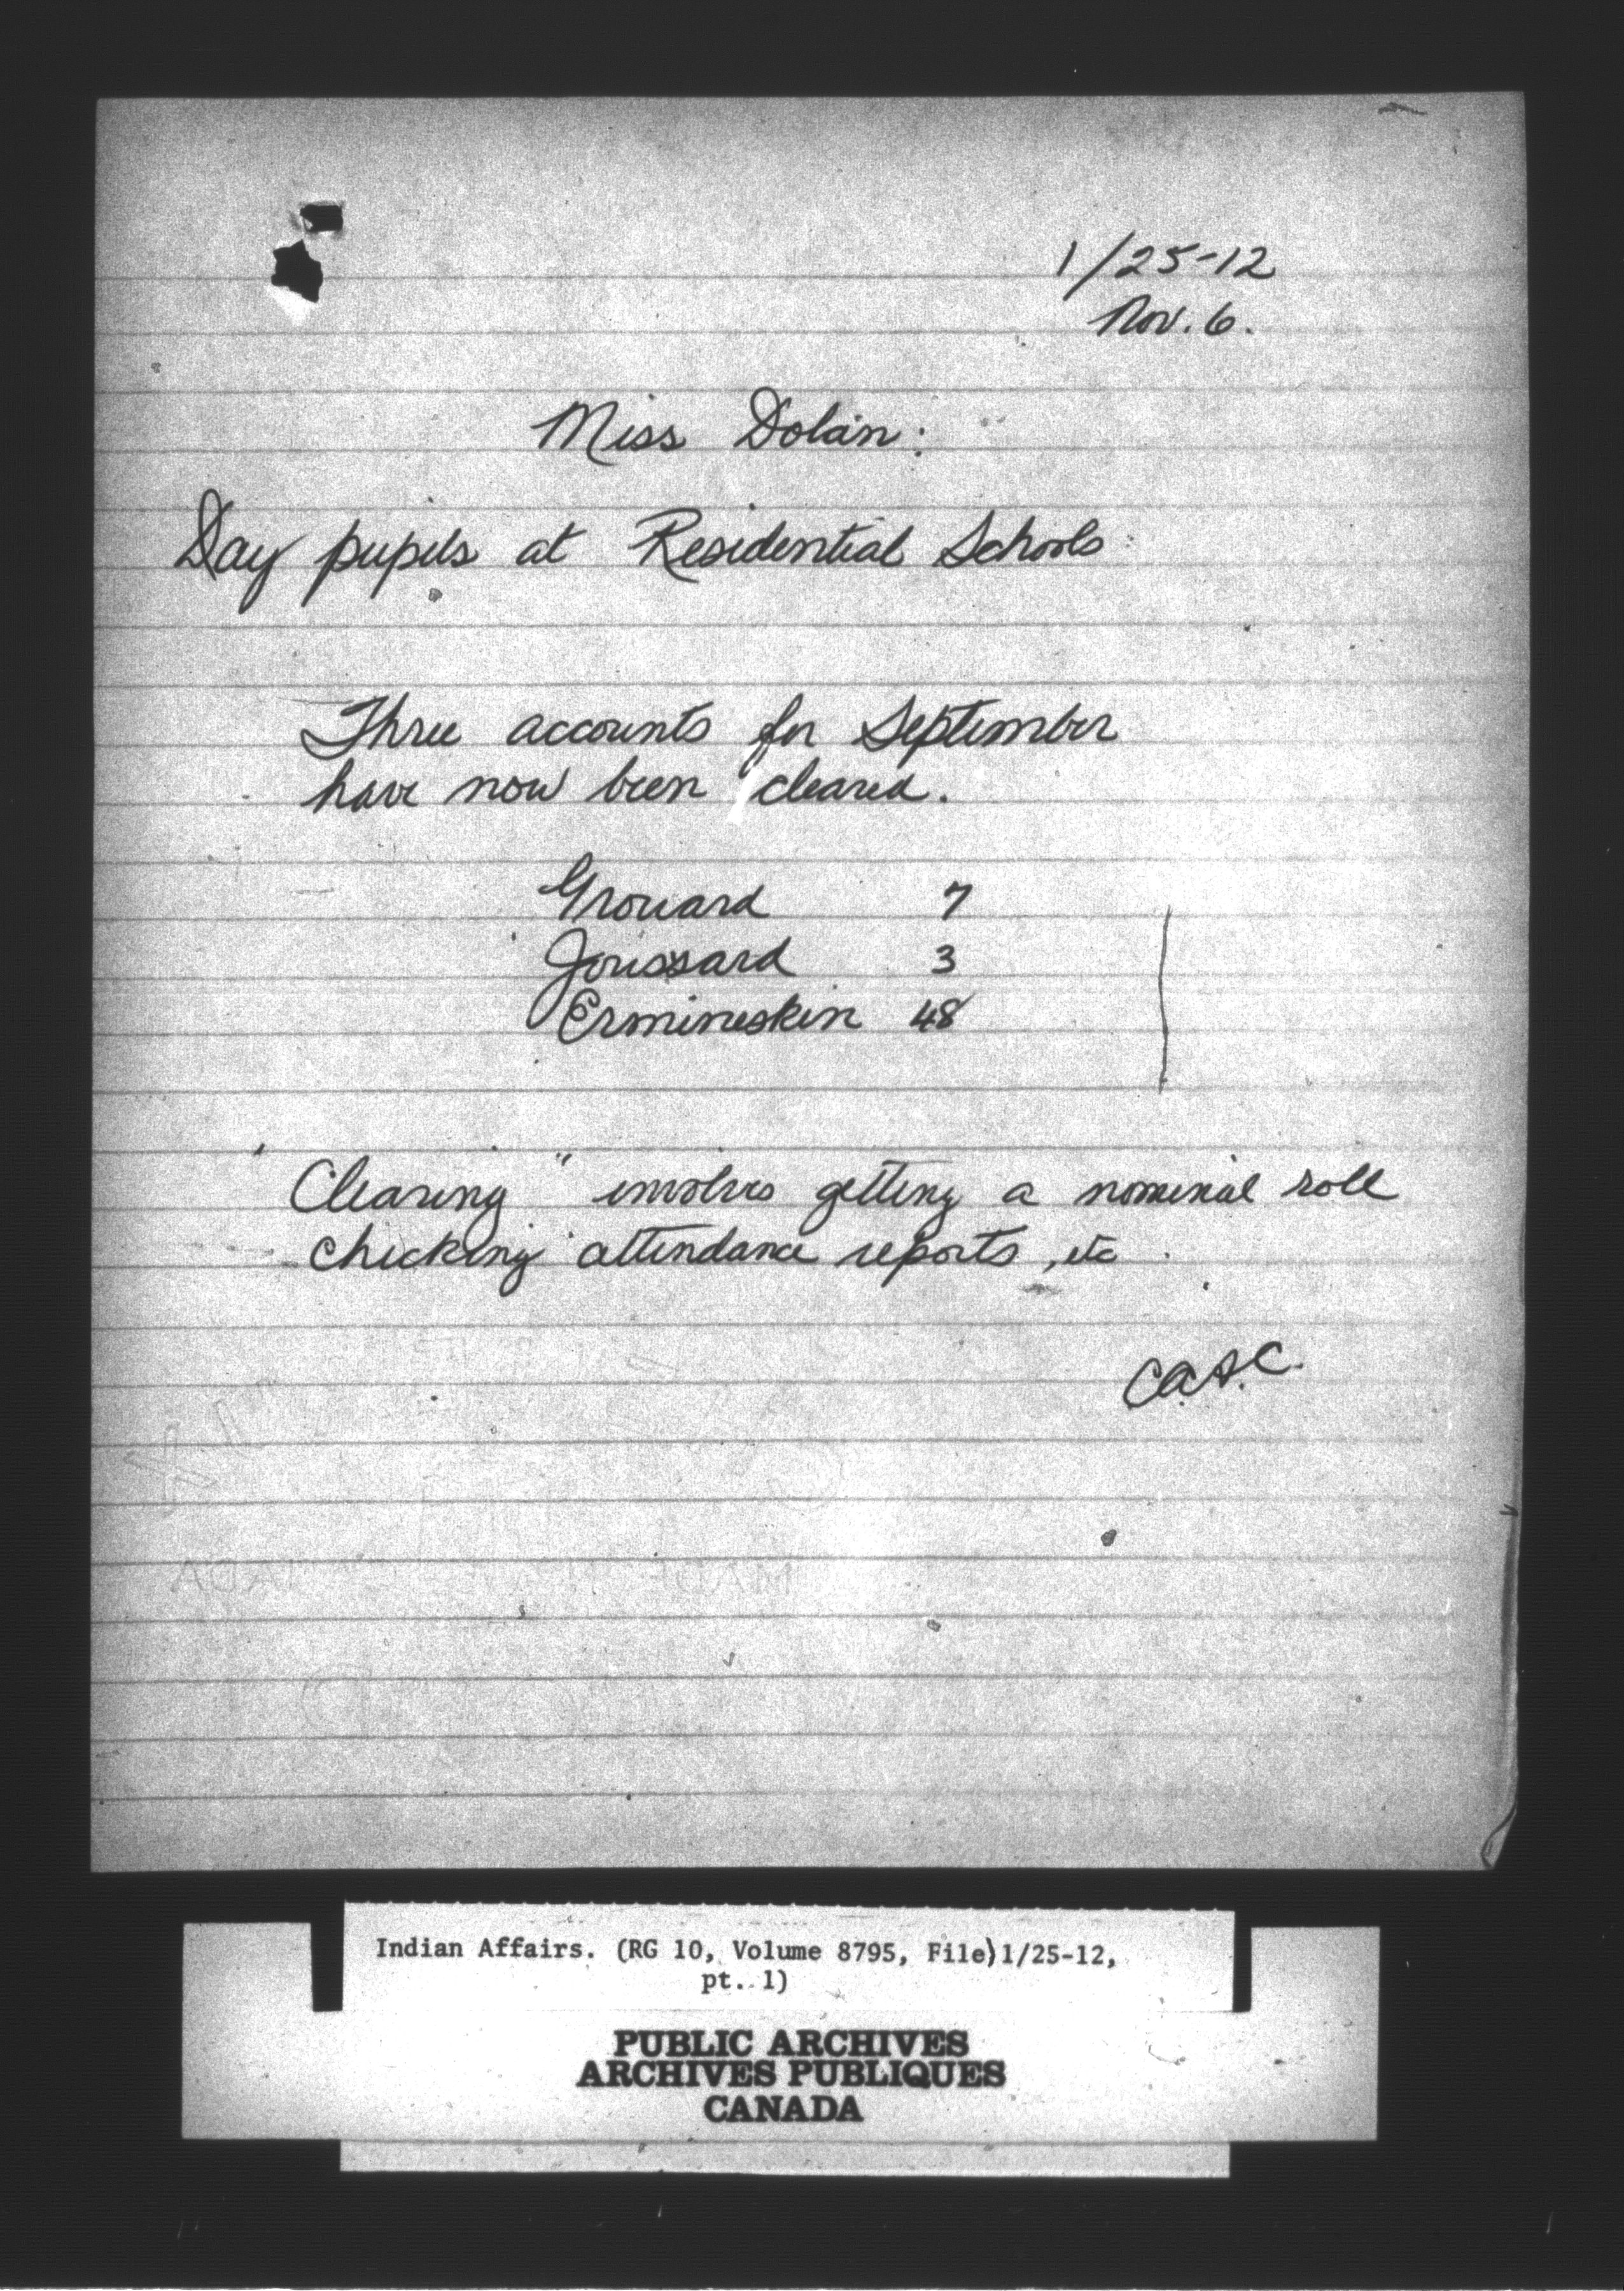 1/25-12
Nov. 6.
Miss Dolan:
Day pupils at Residential Schools
Three accounts for September
have now been cleared.
Grouard 7
Joussard 3
Ermineskin 48
"Clearing" involves getting a nominal roll
checking attendance reports, etc.
C.A.S.C.
Indian Affairs. (RG 10, Volume 8795, File)1/25-12,
pt. 1)
PUBLIC ARCHIVES
ARCHIVES PUBLIQUES
CANADA